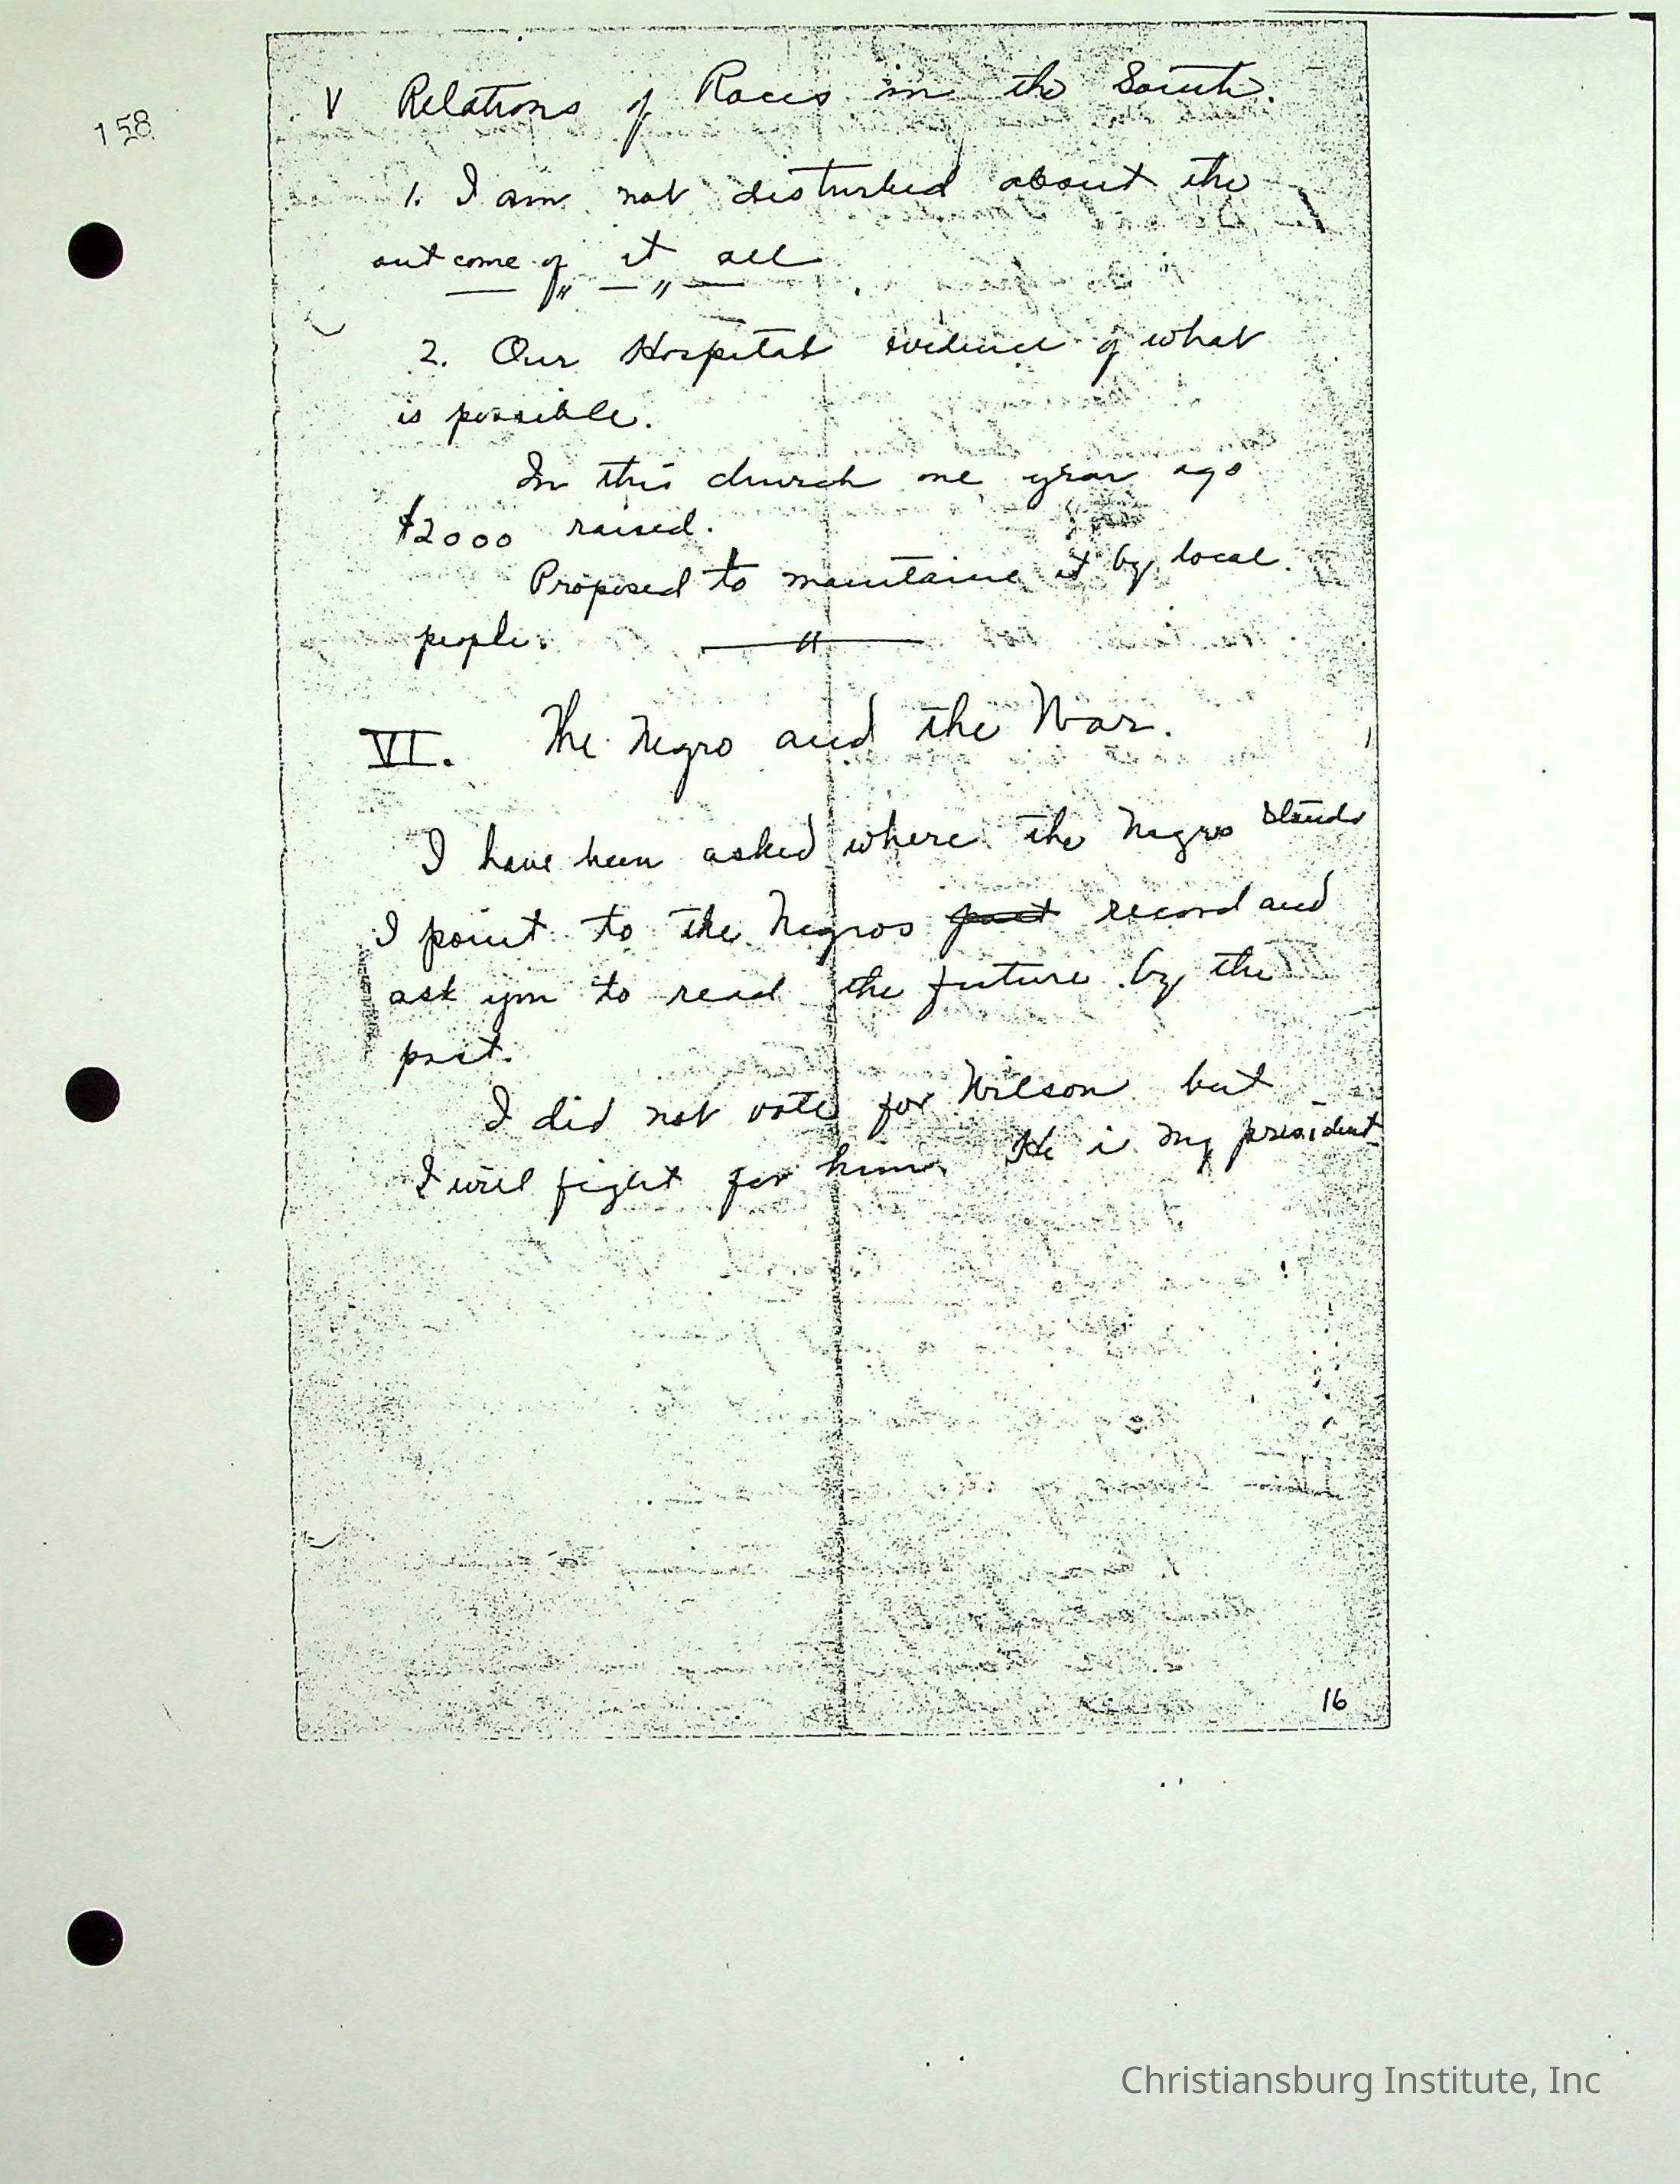 158
V Relations of Races in the South.
1. I am not disturbed about the
outcome of it all
2. Our Hospital evidence of what
is possible.
In this church one year ago
$2000 raised.
Proposed to maintaine it by local
people.
VI. The Negro and the War.
I have been asked where the Negro stands
I point to the Negros past record and
ask you to read the future by the
past.
I did not vote for Wilson but
I will fight for him. He is my president
16
Christiansburg Institute, Inc